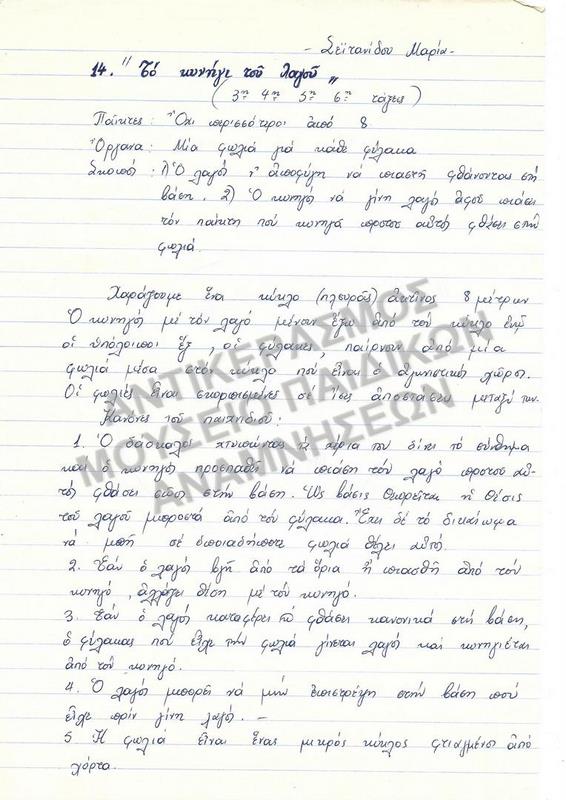 - Σεϊτανίδου Μαρία -
14. "Τό κυνήγι τοῦ λαγοῦ"
( 3η 4η 5η 6η τάξεις )
Παῖκτες: Ὄχι περισσότεροι ἀπό 8
Ὄργανα: Μία φωλιά γιά κάθε φύλακα
Σκοποί: 1) Ὁ λαγός ν' ἀποφύγη νά πιαστῆ φθάνοντας στή
βάση. 2) Ὁ κυνηγός νά γίνη λαγός ἀφοῦ πιάσει
τόν παίκτη πού κυνηγᾶ προτοῦ αὐτός φθάσει στήν
φωλιά.
Χαράζουμε ἕνα κύκλο (πλευρᾶς) ἀκτῖνος 8 μέτρων
Ὁ κυνηγός μέ τόν λαγό μένουν ἔξω ἀπό τόν κύκλο ἐνῶ
οἱ ὑπόλοιποι ἕξ, οἱ φύλακες, παίρνουν ἀπό μία
φωλιά μέσα στόν κύκλο πού εἶναι ὁ ἀγωνιστικός χῶρος.
Οἱ φωλιές εἶναι σκορπισμένες σέ ἴσες ἀποστάσεις μεταξύ των.
Κανόνες τοῦ παιχνιδιοῦ:
1. Ὁ δάσκαλος κτυπώντας τά χέρια του δίνει τό σύνθημα
καί ὁ κυνηγός προσπαθεῖ νά πιάση τόν λαγό προτοῦ αὐ-
τός φθάσει στήν βάση. Ὡς βάσις θεωρεῖται ἡ θέσις
τοῦ λαγοῦ μπροστά ἀπό τόν φύλακα. Ἔχει δέ τό δικαίωμα
νά μπῆ σέ ὁποιαδήποτε φωλιά θέλει αὐτός.
2. Ἐάν ὁ λαγός βγῆ ἀπό τά ὅρια ἤ πιασθῆ ἀπό τόν
κυνηγό, ἀλλάζει θέση μέ τόν κυνηγό.
3. Ἐάν ὁ λαγός καταφέρει νά φθάσει κανονικά στή βάση,
ὁ φύλακας πού εἶχε τήν φωλιά γίνεται λαγός καί κυνηγιέται
ἀπό τόν κυνηγό.
4. Ὁ λαγός μπορεῖ νά μήν ἐπιστρέψη στήν βάση πού
εἶχε πρίν γίνη λαγός. -
5 Ἡ φωλιά εἶναι ἕνας μικρός κύκλος φτιαγμένος ἀπό
χόρτα.
ΑΝΤΙΚΕΡΑΣΜΟΣ
ΜΟΥΣΕΙΟ ΠΑΙΔΙΚΩΝ
ΑΝΑΜΝΗΣΕΩΝ